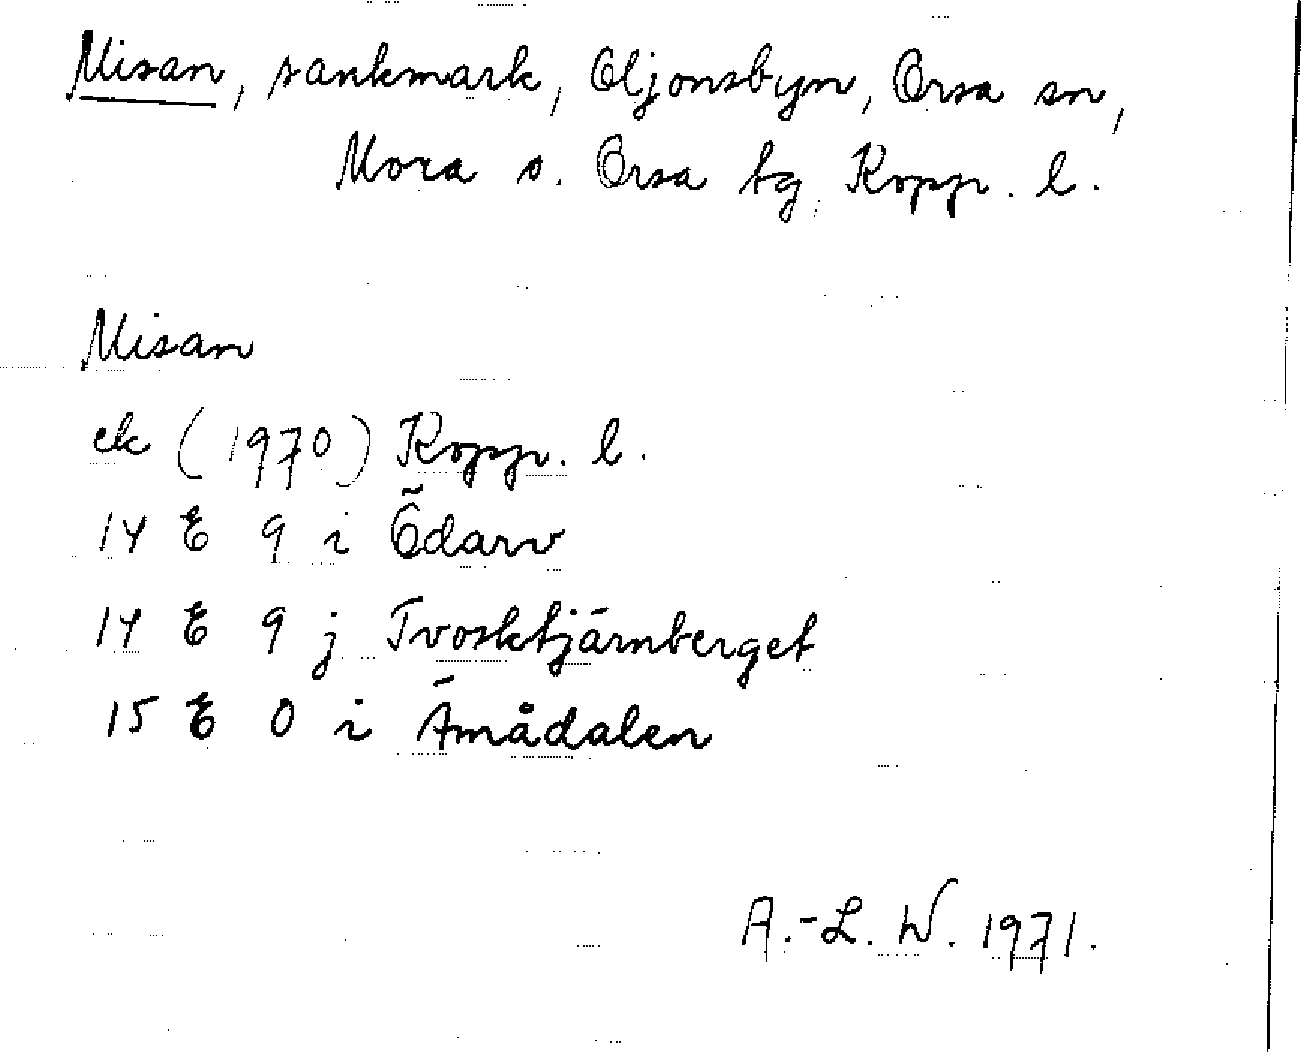 Misan, sankmark, Oljonsbyn, Orsa sn,
Mora o. Orsa tg, Kopp. l.
Misan
ek (1970) Kopp. l.
14 E 9 i Ödarv
14 E 9 j Tvosktjärnberget
15 E 0 i Ämådalen
A.-L. W. 1971.